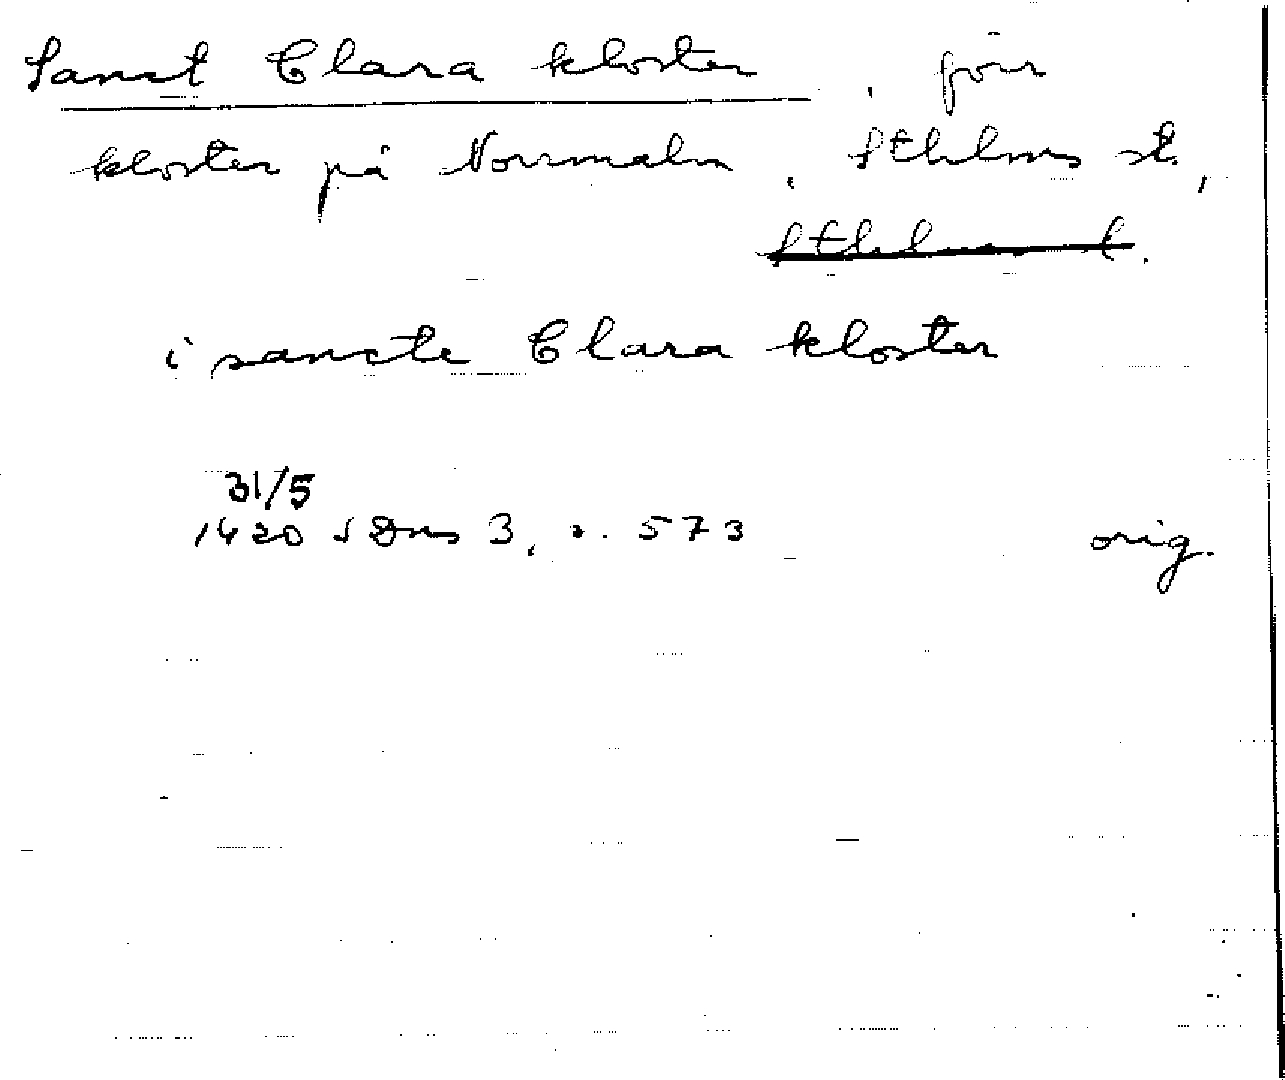 Sanct Clara kloster, förr
kloster på Norrmalm, Sthlms st.,
Sthlms l.
i sancte Clara kloster
31/5
1420 SDns 3, s. 573 orig.